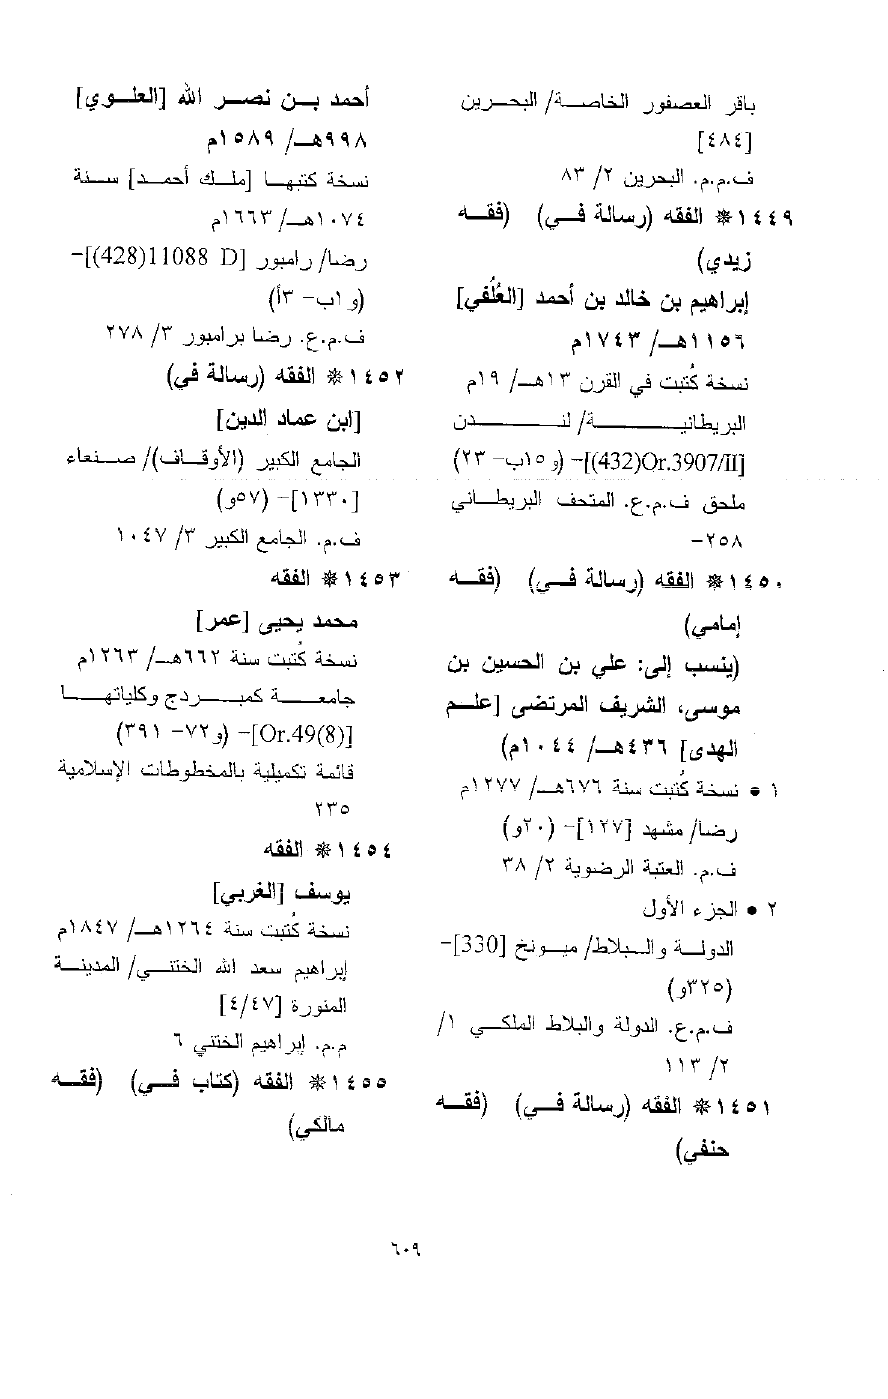 باقر العصفور الخاصة/ البحرين
[٤٨٤]
ف.م.م. البحرين ٢/ ٨٣
١٤٤٩* الفقه (رسالة في) (فقه
زيدي)
إبراهيم بن خالد بن أحمد [العُلُفي]
١١٥٦هـ/ ١٧٤٣م
نسخة كُتبت في القرن ١٣هـ/ ١٩م
البريطانية/ لندن
[(432)Or.3907/II]- (و١٥ب- ٢٣)
ملحق ف.م.ع. المتحف البريطاني
٢٥٨-
١٤٥٠* الفقه (رسالة في) (فقه
إمامي)
(ينسب إلى: علي بن الحسين بن
موسى، الشريف المرتضى [علم
الهدى] ٤٣٦هـ/ ١٠٤٤م)
١ • نسخة كُتبت سنة ٦٧٦هـ/ ١٢٧٧م
رضا/ مشهد [١٢٧]- (٢٠و)
ف.م. العتبة الرضوية ٢/ ٣٨
٢ • الجزء الأول
الدولة والبلاط/ ميونخ [330]-
(٣٢٥و)
ف.م.ع. الدولة والبلاط الملكي ١/
٢/ ١١٣
١٤٥١* الفقه (رسالة في) (فقه
حنفي)
أحمد بن نصر الله [العلوي]
٩٩٨هـ/ ١٥٨٩م
نسخة كتبها [ملك أحمد] سنة
١٠٧٤هـ/ ١٦٦٣م
رضا/ رامبور [428)11088 D)]-
(و١ب- ٣أ)
ف.م.ع. رضا برامبور ٣/ ٢٧٨
١٤٥٢* الفقه (رسالة في)
[ابن عماد الدين]
الجامع الكبير (الأوقاف)/ صنعاء
[١٣٣٠]- (٥٧و)
ف.م. الجامع الكبير ٣/ ١٠٤٧
١٤٥٣* الفقه
محمد يحيى [عمر]
نسخة كُتبت سنة ٦٦٢هـ/ ١٢٦٣م
جامعة كمبردج وكلياتها
[Or.49(8)]- (و٧٢- ٣٩١)
قائمة تكميلية بالمخطوطات الإسلامية
٢٣٥
١٤٥٤* الفقه
يوسف [الغربي]
نسخة كُتبت سنة ١٢٦٤هـ/ ١٨٤٧م
إبراهيم سعد الله الختني/ المدينة
المنورة [٤/٤٧]
م.م. إبراهيم الختني ٦
١٤٥٥* الفقه (كتاب في) (فقه
مالكي)
٦٠٩